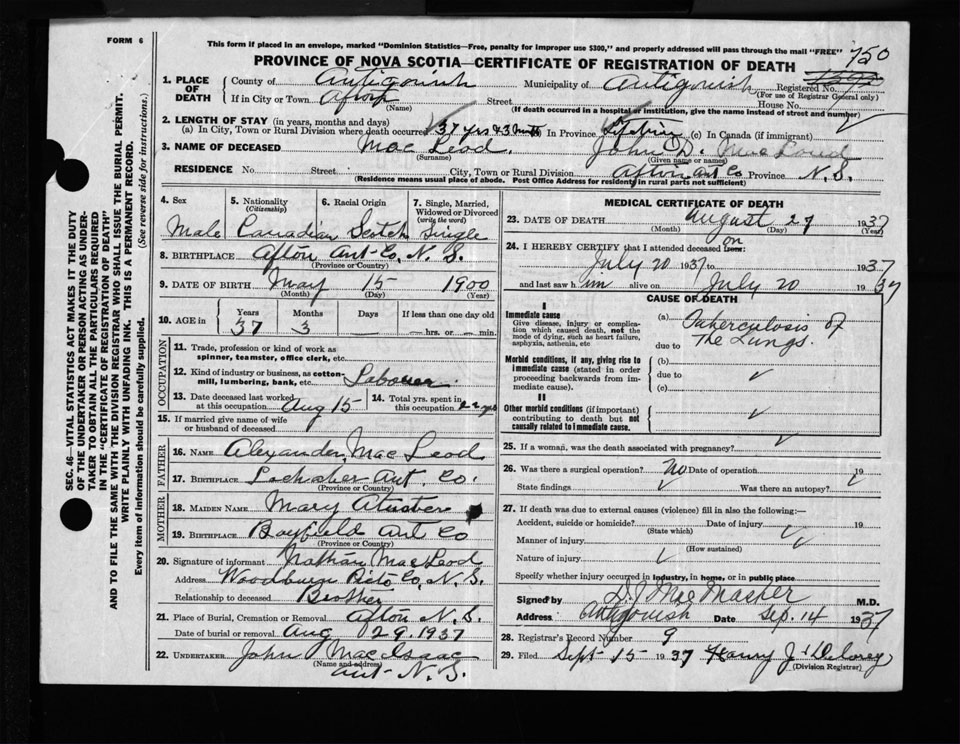 FORM 6
This form if placed in an envelope, marked "Dominion Statistics—Free, penalty for improper use $300," and properly addressed will pass through the mail "FREE"
PROVINCE OF NOVA SCOTIA—CERTIFICATE OF REGISTRATION OF DEATH
750
1. PLACE OF DEATH
County of Antigonish Municipality of Antigonish Registered No.
(For use of Registrar General only)
If in City or Town Afton Street House No.
(Name) (If death occurred in a hospital of institution, give the name instead of street and number)
2. LENGTH OF STAY (in years, months and days)
(a) In City, Town or Rural Division where death occurred 37 yrs & 3 mnths In Province Lifetime (c) In Canada (if immigrant)
3. NAME OF DECEASED Mac Leod. John D. MacLeod
(Surname) (Given name or names)
RESIDENCE No. Street City, Town or Rural Division Afton Ant Co Province N.S.
(Residence means usual place of abode. Post Office Address for residents in rural parts not sufficient)
4. Sex
Male
5. Nationality (Citizenship)
Canadian
6. Racial Origin
Scotch
7. Single, Married, Widowed or Divorced (write the word)
Single
8. BIRTHPLACE Afton Ant Co. N.S.
(Province or Country)
9. DATE OF BIRTH May 15 1900
(Month) (Day) (Year)
10. AGE in Years Months Days If less than one day old
37 3 hrs. or min.
OCCUPATION
11. Trade, profession or kind of work as spinner, teamster, office clerk, etc.
12. Kind of industry or business, as cotton-mill, lumbering, bank, etc. Labourer.
13. Date deceased last worked at this occupation Aug 15
14. Total yrs. spent in this occupation
15. If married give name of wife or husband of deceased
FATHER
16. NAME Alexander Mac Leod
17. BIRTHPLACE Lochaber Ant. Co.
(Province or Country)
MOTHER
18. MAIDEN NAME Mary
19. BIRTHPLACE Bayfield Ant Co
(Province or Country)
20. Signature of informant Nathan MacLeod
Address Woodburn Picto Co, N.S.
Relationship to deceased Brother
21. Place of Burial, Cremation or Removal Afton N.S.
Date of burial or removal Aug 29. 1937
22. UNDERTAKER John MacIsaac
(Name and address)
Ant. N.S.
MEDICAL CERTIFICATE OF DEATH
23. DATE OF DEATH August 27 1937
(Month) (Day) (Year)
24. I HEREBY CERTIFY that I attended deceased from: on
July 20 1937 to 1937
and last saw him alive on July 20 1937
CAUSE OF DEATH
I
Immediate cause
Give disease, injury or complication which caused death, not the mode of dying, such as heart failure, asphyxia, asthenia, etc
(a) Tuberculosis of
due to The Lungs.
Morbid conditions, if any, giving rise to immediate cause (stated in order proceeding backwards from immediate cause).
(b)
due to
(c)
II
Other morbid conditions (if important) contributing to death but not causally related to immediate cause.
25. If a woman, was the death associated with pregnancy?
26. Was there a surgical operation? no Date of operation 19
State findings Was there an autopsy?
27. If death was due to external causes (violence) fill in also the following:—
Accident, suicide or homicide? Date of injury 19
(State which)
Manner of injury
(How sustained)
Nature of injury
Specify whether injury occurred in industry, in home, or in public place
Signed by D.J. MacMaster M.D.
Address Antigonish Date Sep. 14 1937
28. Registrar's Record Number 9
29. Filed Sept 15 1937 Henry J. Delorey
(Division Registrar)
SEC. 46—VITAL STATISTICS ACT MAKES IT THE DUTY
OF THE UNDERTAKER OR PERSON ACTING AS UNDER-
TAKER TO OBTAIN ALL THE PARTICULARS REQUIRED
IN THE "CERTIFICATE OF REGISTRATION OF DEATH"
AND TO FILE THE SAME WITH THE DIVISION REGISTRAR WHO SHALL ISSUE THE BURIAL PERMIT.
WRITE PLAINLY WITH UNFADING INK. THIS IS A PERMANENT RECORD.
Every item of information should be carefully supplied. (See reverse side for instructions.)